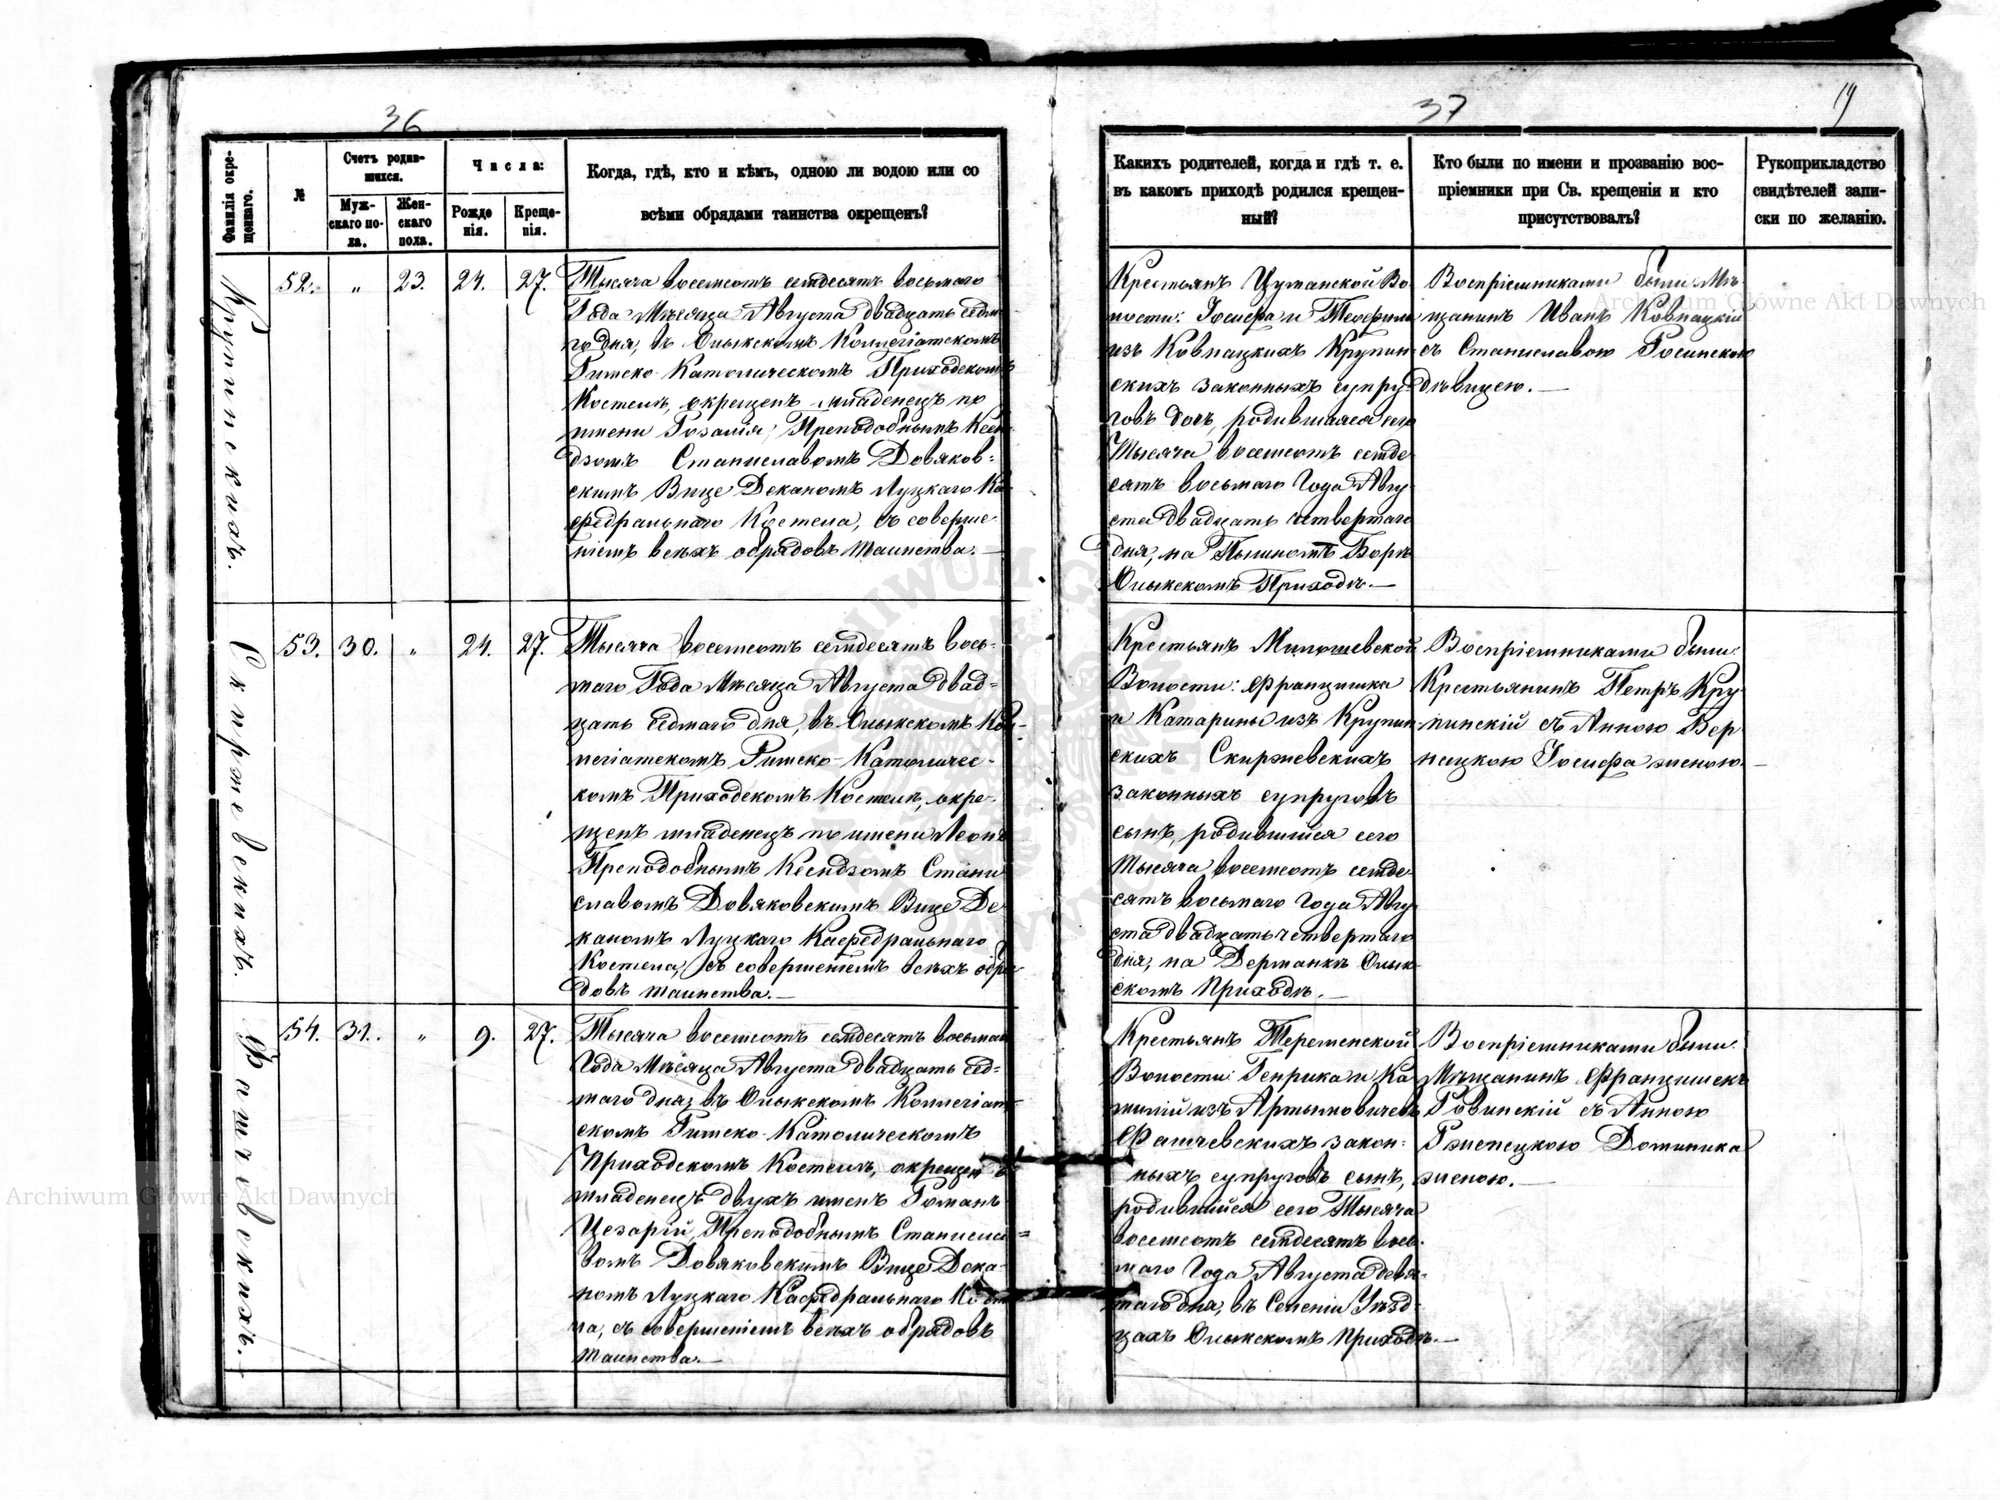 36
37
19
Фамилія окрещеннаго.
№
Счетъ родившихся.
Мужскаго пола.
Женскаго пола.
Числа:
Рожденія.
Крещенія.
Когда, гдѣ, кто и кѣмъ, одною ли водою или со
всѣми обрядами таинства окрещенъ?
Каихъ родителей, когда и гдѣ т. е.
въ какомъ приходѣ родился крещен-
ный?
Кто были по имени и прозванію вос-
пріемники при Св. крещеніи и кто
присутствовалъ?
Рукоприкладство
свидѣтелей запи-
ски по желанію.
Крупинскихъ.
52. „ 23. 24. 27.
Тысяча восемсотъ семдесятъ восьмого
Года Мѣсяца Августа двадцать седмо
го дня, въ Олыкскомъ Коллегіатскомъ
Римско-Католическомъ Приходскомъ
Костелѣ, окрещенъ младенецъ по
имени Розалія, Преподобнымъ Ксен
дзомъ Станиславомъ Довяков-
скимъ Вице Деканомъ Луцкаго Ка
федральнаго Костела, съ соверше
ніемъ всѣхъ обрядовъ таинства.—
Крестьянъ Цуманской Во
лости: Іосифа и Теофили
изъ Ковнацкихъ Крупин
скихъ законныхъ супру
говъ дочь, родившаяся сего
Тысяча восемсотъ семде
сятъ восьмаго Года Авгу
ста двадцать четвертаго
дня, на Пышномъ Боркѣ
Олыкскомъ Приходѣ.—
Воспріемниками были: Мѣ
щанинъ Иванъ Ковнацкій
съ Станиславою Росинскою
дѣвицею.—
Скиржевскихъ.
53. 30. „ 24. 27.
Тысяча восемсотъ семдесятъ вось-
маго Года Мѣсяца Августа двад-
цать седмаго дня, въ Олыкскомъ Кол-
легіатскомъ Римско-Католичес-
комъ Приходскомъ Костелѣ, окре-
щенъ младенецъ по имени Леонъ
Преподобнымъ Ксендзомъ Стани
славомъ Довяковскимъ Вице Де
каномъ Луцкаго Кафедральнаго
Костела, съ совершеніемъ всѣхъ обря
довъ таинства.—
Крестьянъ Милошевской
Волости: Францишка
и Катарины изъ Крупин
скихъ Скиржевскихъ
законныхъ супруговъ
сынъ, родившійся сего
Тысяча восемсотъ семде
сятъ восьмаго Года Авгу
ста двадцать четвертаго
дня, на Дерманкѣ Олык
скомъ Приходѣ.—
Воспріемниками были:
Крестьянинъ Петръ Кру
пинскій съ Анною Вер
нецкою Іосифа женою.—
Фащевскихъ.
54. 31. „ 9. 27.
Тысяча восемсотъ семдесятъ восьмаго
Года Мѣсяца Августа двадцать сед-
маго дня, въ Олыкскомъ Коллегіат-
скомъ Римско-Католическомъ
Приходскомъ Костелѣ, окрещенъ
младенецъ двухъ именъ Романъ
Цезарій, Преподобнымъ Станисла-
вомъ Довяковскимъ Вице Дека-
номъ Луцкаго Кафедральнаго Косте
ла, съ совершеніемъ всѣхъ обрядовъ
таинства.—
Крестьянъ Теременской
Волости: Генрика и Ка
милій изъ Артымовичевъ
Фащевскихъ закон-
ныхъ супруговъ сынъ,
родившійся сего Тысяча
восемсотъ семдесятъ вось-
маго Года Августа девя-
таго дня, въ Селеніи Уѣзд-
цахъ Олыкскомъ Приходѣ.—
Воспріемниками были:
Мѣщанинъ Францишекъ
Ровинскій съ Анною
Ржепецкою Доминика
женою.—
Archiwum Główne Akt Dawnych
Archiwum Główne Akt Dawnych